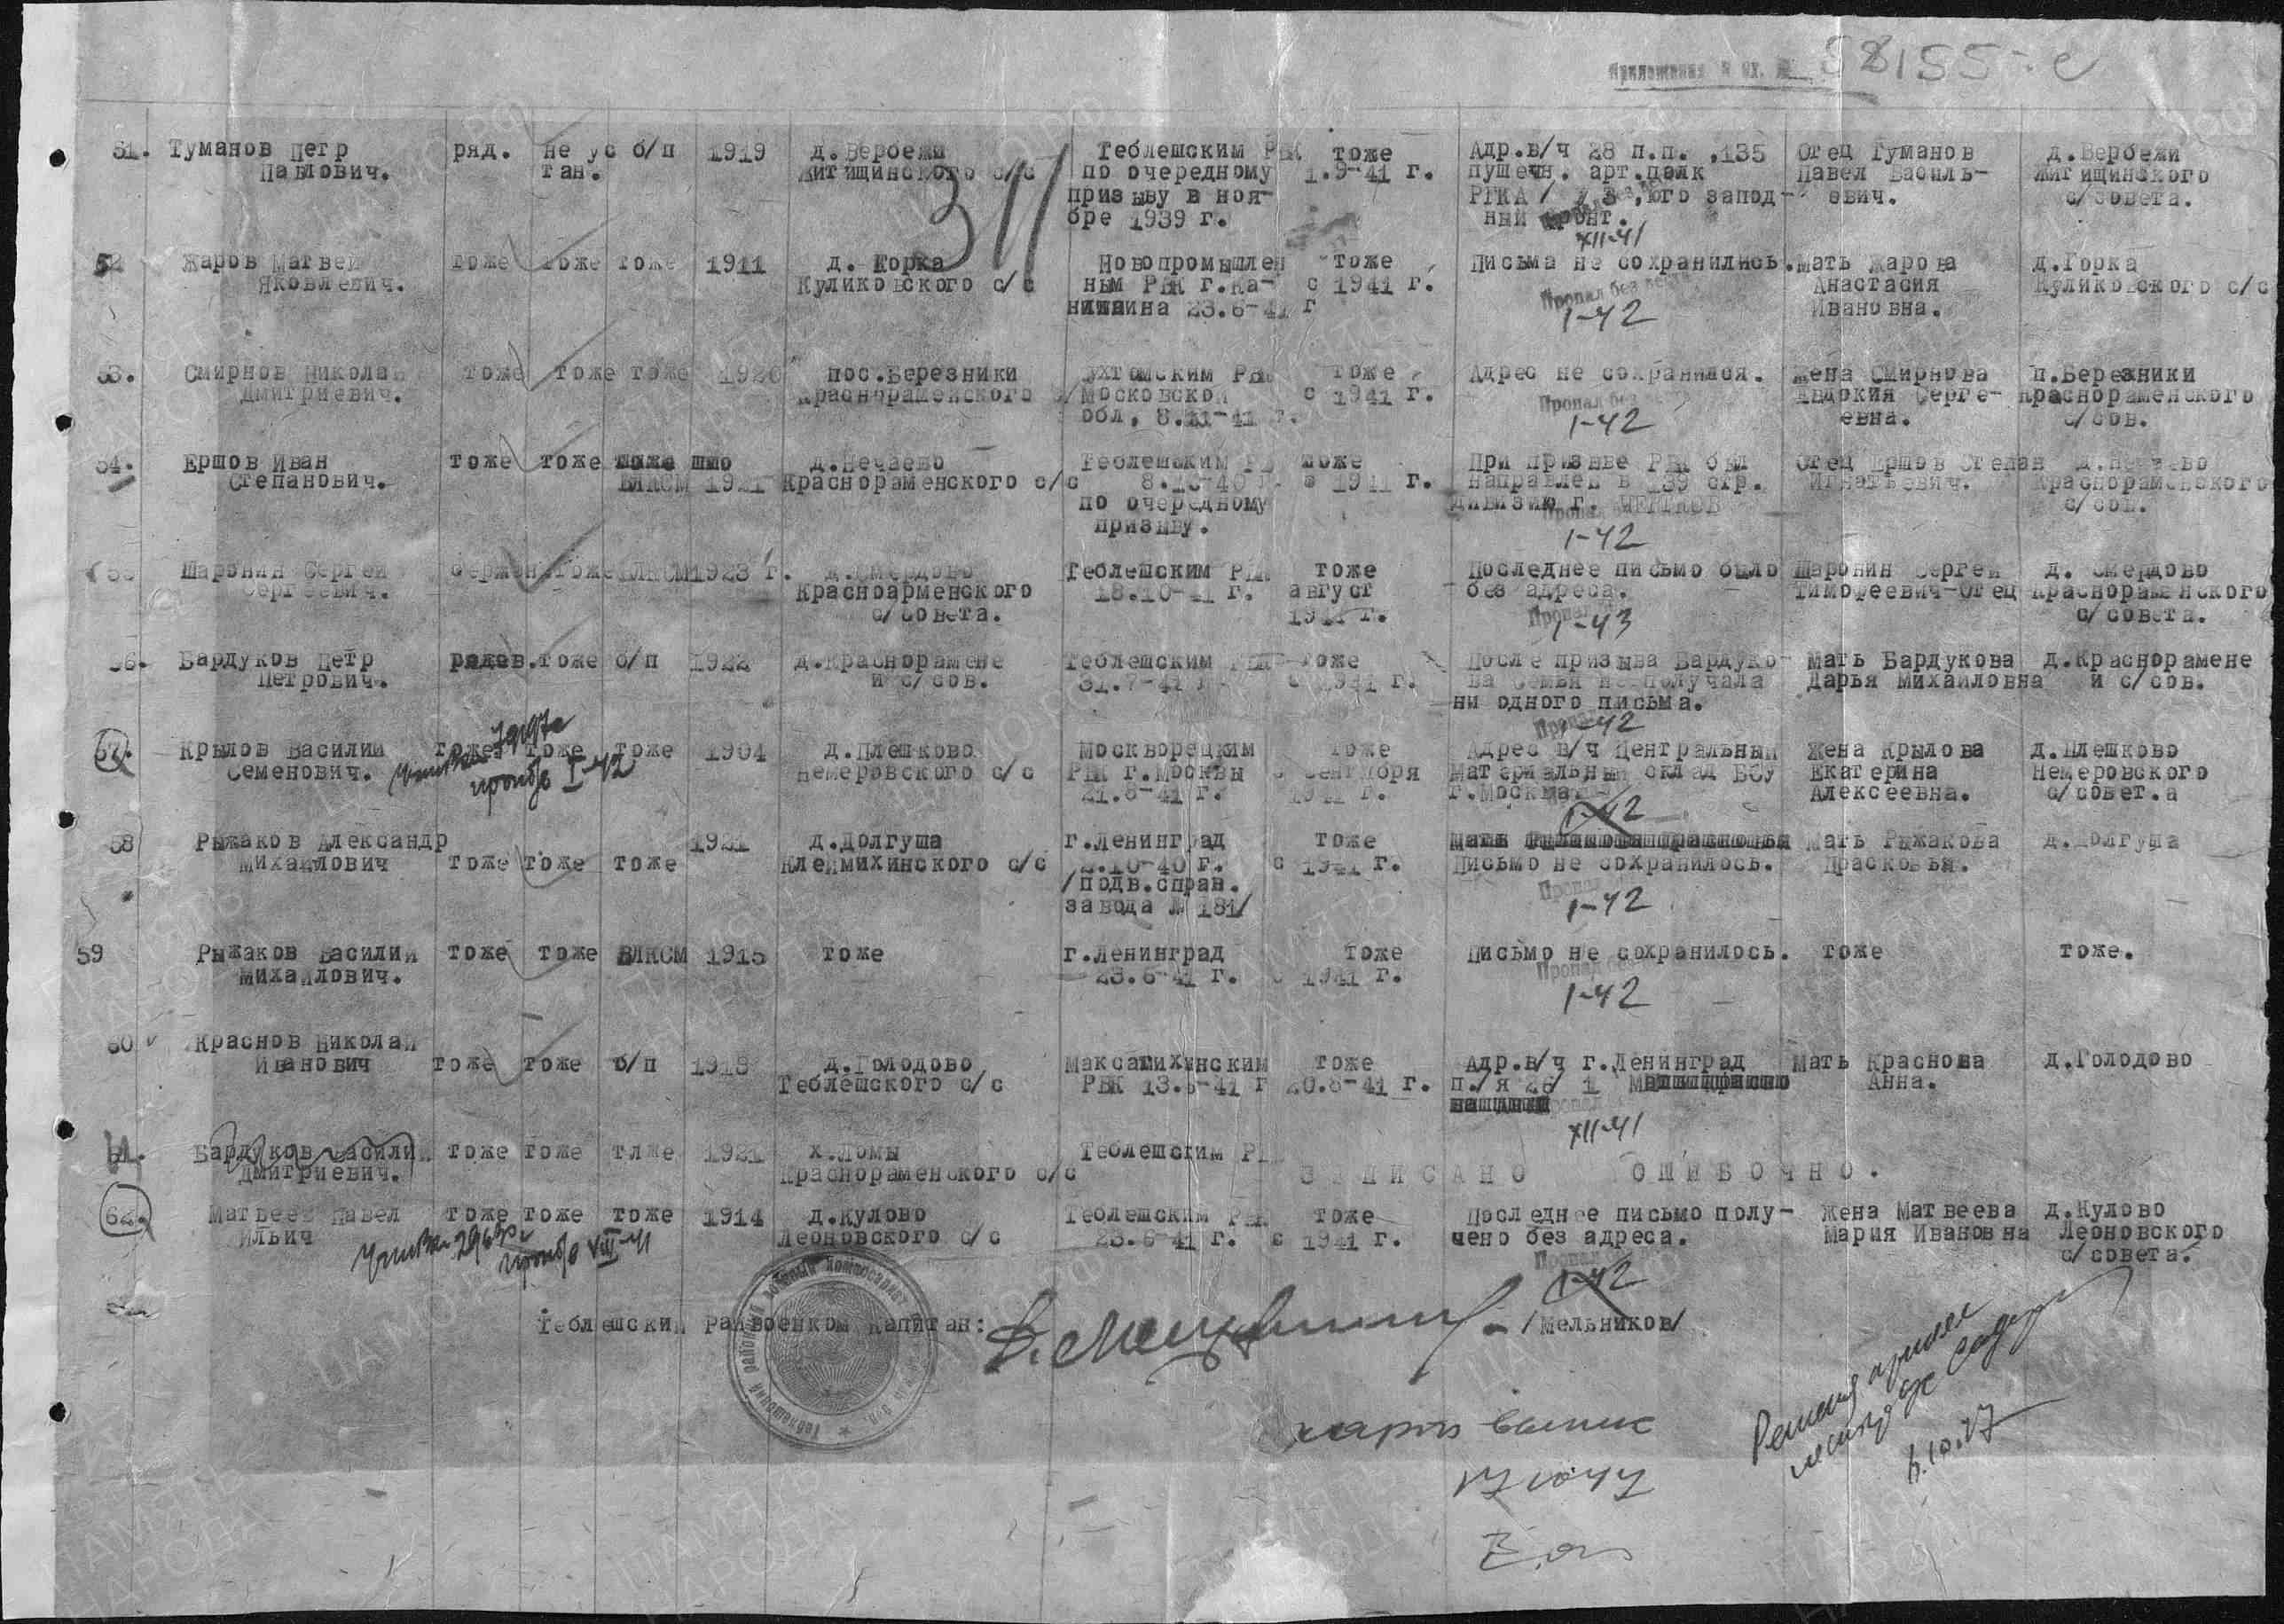 Приложение к вх. № 58155-с
51. Туманов Петр ряд. не ус б/п 1919 д.Вербежи Теблешским РВК тоже Адр.в/ч 28 п.п. ,135 Отец Туманов д.Вербежи
Павлович. тан. Житищинского с/с по очередному 1.9-41 г. пушечн. арт.полк Павел Василь- Житищинского
призыву в ноя- РГКА / 3,юго запад- евич. с/совета.
бре 1939 г. ный фронт.
311
XII-41
52 Жаров Матвей тоже тоже тоже 1911 д. Горка Новопромышлен тоже Письма не сохранились. Мать Жарова д.Горка
Яковлевич. Куликовского с/с ным РВК г.Ка- с 1941 г. Пропал без вести Анастасия Куликовского с/с
нина 23.6-41 г 1-42 Ивановна.
53. Смирнов Николай тоже тоже тоже 1920 пос.Березники Ухтомским РВК тоже Адрес не сохранился. Жена Смирнова п.Березники
Дмитриевич. Краснораменского Московской с 1941 г. Пропал без Евдокия Серге- Краснораменского
обл, 8.11-41 г. 1-42 евна. с/сов.
54. Ершов Иван тоже тоже 1921 д.Нечаево Теблешским РВК тоже При призыве РВК был Отец Ершов Степан д.Нечаево
Степанович. ВЛКСМ Краснораменского с/с 8.10-40 г. с 1941 г. направлен в 139 стр. Игнатьевич. Краснораменского
по очередному дивизию г. с/сов.
призыву. 1-42
55 Шаронин Сергей сержан. тоже ВЛКСМ 1923 г. д.Смердово Теблешским РВК тоже Последнее письмо было Шаронин Сергей д. Смердово
Сергеевич. Красноарменского 18.10-41 г. август без адреса. Тимофеевич-Отец Краснораменского
с/совета. 1941 г. 1-43 с/совета.
56. Бардуков Петр рядов. тоже б/п 1922 д.Краснорамене Теблешским РВК тоже После призыва Бардуко- Мать Бардукова д.Краснорамене
Петрович. и с/сов. 31.7-41 г с 1941 г. ва семья не получала Дарья Михайловна и с/сов.
ни одного письма.
1-42
57. Крылов Василий тоже тоже тоже 1904 д.Плешково Москворецким тоже Адрес в/ч Центральный Жена Крылова д.Плешково
Семенович. Немеровского с/с РВК г.Москвы с сентября Материальный склад ВСУ Екатерина Немеровского
погиб I-42 21.8-41 г. 1941 г. г.Москва Алексеевна. с/совет.а
1-42
58 Рыжаков Александр 1921 д.Долгуша г.Ленинград тоже Мать Рыжакова д.Долгуша
Михайлович тоже тоже тоже Клеймихинского с/с 2.10-40 г. с 1941 г. Письмо не сохранилось. Прасковья.
/подв.справ.
завода № 181/ 1-42
59 Рыжаков Василий тоже тоже ВЛКСМ 1915 тоже г.Ленинград тоже Письмо не сохранилось. тоже тоже.
Михайлович. 23.6-41 г. с 1941 г. Пропал без
1-42
60 Краснов Николай
Иванович тоже тоже б/п 1918 д.Голодово Максатихинским тоже Адр.в/ч г.Ленинград Мать Краснова д.Голодово
Теблешского с/с РВК 13.6-41 г 20.8-41 г. п./я 26/ 1 Анна.
XII-41
61. Бардуков Василий тоже тоже тлже 1921 х.Ломы Теблешским РВК
Дмитриевич. Краснораменского с/с ЗАПИСАНО ОШИБОЧНО.
62. Матвеев Павел тоже тоже тоже 1914 д.Кулово Теблешским РВК тоже Последнее письмо полу- Жена Матвеева д.Кулово
Ильич Леоновского с/с 23.6-41 г. с 1941 г. чено без адреса. Мария Ивановна Леоновского
погиб VIII-41 с/совета.
1-42
Теблешский Райвоенком Капитан: /Мельников/
6.10.47